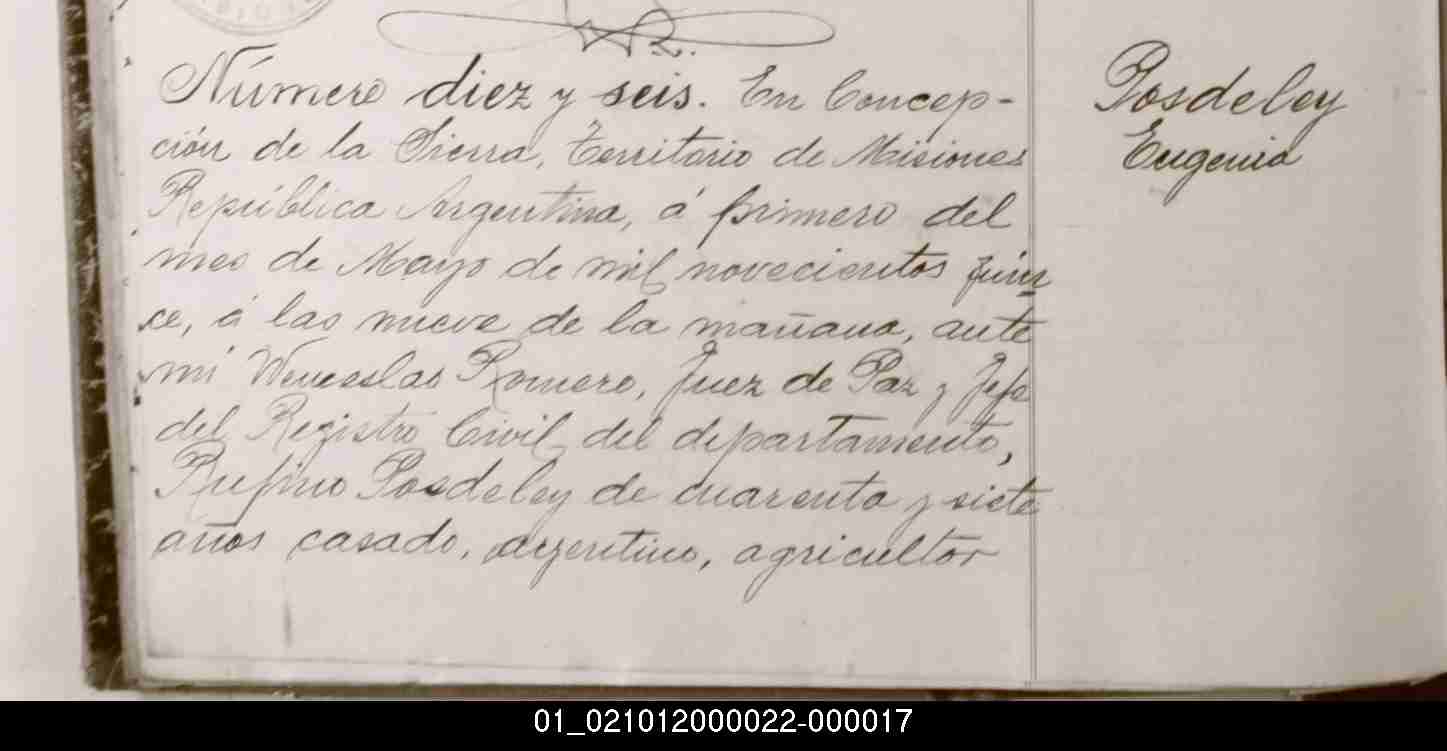 Número diez y seis. En Concep-
ción de la Sierra, Territorio de Misiones
República Argentina, á primero del
mes de Mayo de mil novecientos quin
ce, á las nueve de la mañana, ante
mí Wenceslao Romero, Juez de Paz y Jefe
del Registro Civil del departamento,
Rufino Posdeley de cuarenta y siete
años casado, argentino, agricultor
Posdeley
Eugenia
01_021012000022-000017